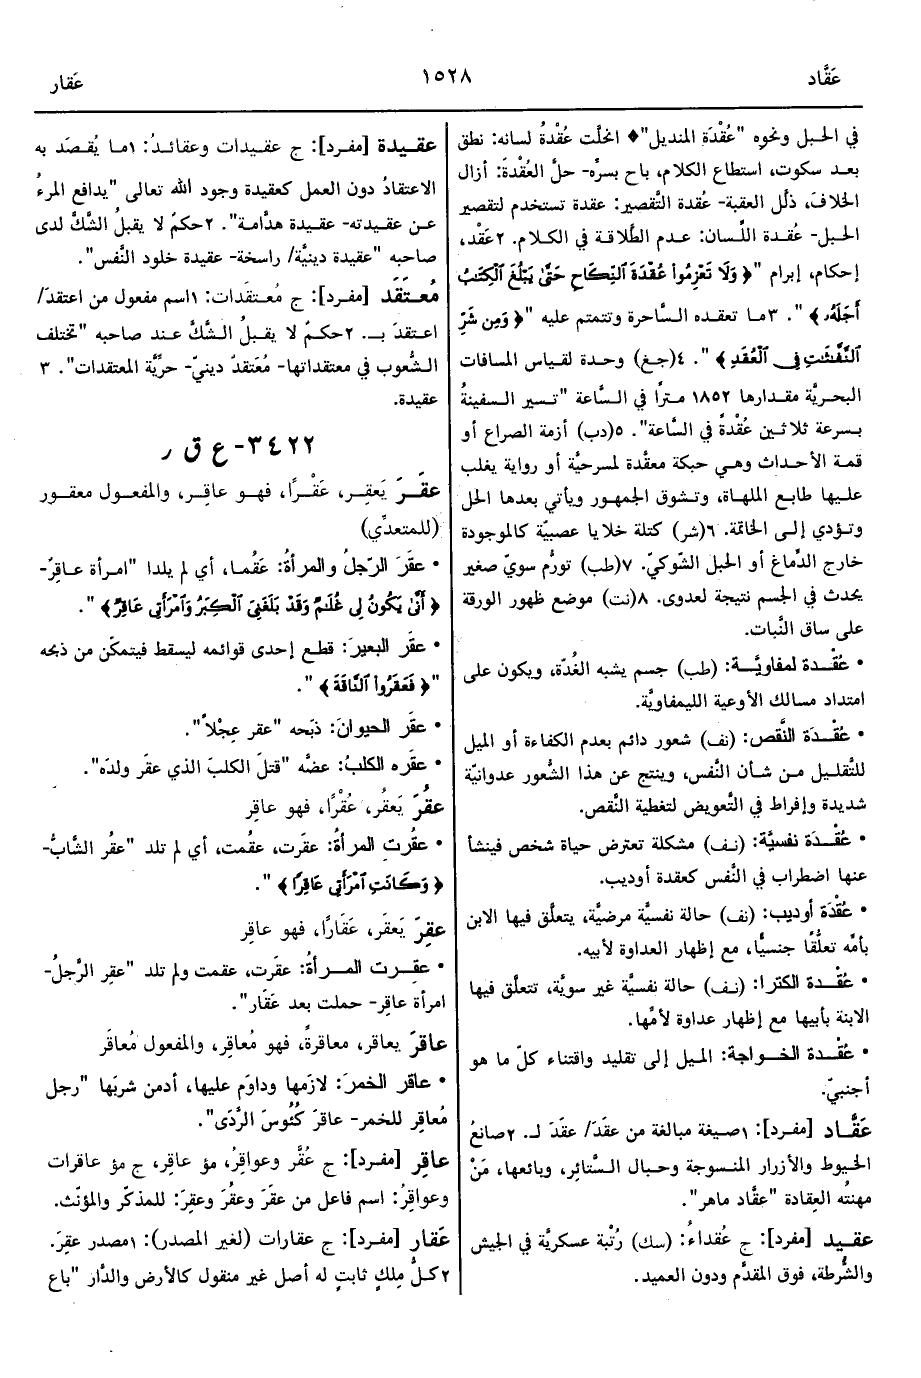 عَقَّاد
١٥٢٨
عَقار
في الحبل ونحوه "عُقْدَة المنديل"♦ انحلَّت عُقْدةُ لسانه: نطق
بعد سكوت، استطاع الكلام، باح بسرّه- حلَّ العُقْدَة: أزال
الخلافَ، ذلَّل العقبة- عُقدة التَّقصير: عقدة تستخدم لتقصير
الحبل- عُقدة اللِّسان: عدم الطَّلاقة في الكلام. ٢عَقْد،
إحكام، إبرام "﴿وَلَا تَعْزِمُوا عُقْدَةَ النِّكَاحِ حَتَّى يَبْلُغَ الْكِتَٰبُ
أَجَلَهُ﴾". ٣ما تعقده السَّاحرة وتتمتم عليه "﴿وَمِن شَرِّ
النَّفَّٰثَٰتِ فِي الْعُقَدِ﴾". ٤(جغ) وحدة لقياس المسافات
البحريَّة مقدارها ١٨٥٢ مترًا في السَّاعة "تسير السفينةُ
بسرعة ثلاثين عُقْدةً في الساعة". ٥(دب) أزمة الصراع أو
قمة الأحداث وهي حبكة معقدة لمسرحيَّة أو رواية يغلب
عليها طابع الملهاة، وتشوق الجمهور ويأتي بعدها الحل
وتؤدي إلى الخاتمة. ٦(شر) كتلة خلايا عصبيّة كالموجودة
خارج الدِّماغ أو الحبل الشّوكيّ. ٧(طب) تورُّم سويّ صغير
يحدث في الجسم نتيجة لعدوى. ٨(نت) موضع ظهور الورقة
على ساق النَّبات.
• عُقْدة لمفاويَّة: (طب) جسم يشبه الغُدّة، ويكون على
امتداد مسالك الأوعية الليمفاويَّة.
• عُقْدَة النَّقص: (نف) شعور دائم بعدم الكفاءة أو الميل
للتَّقليل من شأن النَّفس، وينتج عن هذا الشُّعور عدوانيّة
شديدة وإفراط في التَّعويض لتغطية النَّقص.
• عُقْدة نفسيَّة: (نف) مشكلة تعترض حياة شخص فينشأ
عنها اضطراب في النَّفس كعقدة أوديب.
• عُقْدَة أوديب: (نف) حالة نفسيَّة مرضيَّة، يتعلَّق فيها الابن
بأمِّه تعلُّقًا جنسيًّا، مع إظهار العداوة لأبيه.
• عُقْدة الكترا: (نف) حالة نفسيَّة غير سويَّة، تتعلَّق فيها
الابنة بأبيها مع إظهار عداوة لأمِّها.
• عُقْدة الخواجة: الميل إلى تقليد واقتناء كلّ ما هو
أجنبيّ.
عَقَّاد [مفرد]: ١صيغة مبالغة من عقَدَ/ عقَدَ لـ. ٢صانعُ
الخيوط والأزرار المنسوجة وحبال السَّتائر، وبائعها، مَنْ
مهنتُه العِقادة "عقَّاد ماهر".
عقيد [مفرد]: ج عُقداءُ: (سك) رُتْبة عسكريَّة في الجيش
والشُّرطة، فوق المقدَّم ودون العميد.
عقيدة [مفرد]: ج عقيدات وعقائدُ: ١ما يُقصَد به
الاعتقادُ دون العمل كعقيدة وجود الله تعالى "يدافع المرءُ
عن عقيدته- عقيدة هدَّامة". ٢حكمٌ لا يقبلُ الشَّكَّ لدى
صاحبه "عقيدة دينيَّة/ راسخة- عقيدة خلود النَّفس".
مُعتقَد [مفرد]: ج مُعتقَدات: ١اسم مفعول من اعتقدَ/
اعتقدَ بـ. ٢حكمٌ لا يقبلُ الشَّكَّ عند صاحبه "تختلف
الشُّعوب في معتقداتها- مُعتَقدٌ دينيّ- حريَّة المعتقدات". ٣
عقيدة.
٣٤٢٢- ع ق ر
عقَرَ يَعقِر، عَقْرًا، فهو عاقِر، والمفعول معقور
(للمتعدِّي)
• عقَرَ الرّجلُ والمرأةُ: عَقُما، أي لم يلدا "امرأة عاقِرٌ-
﴿أَنَّى يَكُونُ لِي غُلَٰمٌ وَقَدْ بَلَغَنِيَ الْكِبَرُ وَامْرَأَتِي عَاقِرٌ﴾".
• عقَر البعيرَ: قطع إحدى قوائمه ليسقط فيتمكّن من ذبحه
"﴿فَعَقَرُوا النَّاقَةَ﴾".
• عقَر الحيوانَ: ذبَحه "عقر عِجْلاً".
• عقَره الكلبُ: عضَّه "قتلَ الكلبَ الذي عقَر ولدَه".
عقُرَ يَعقُر، عُقْرًا، فهو عاقِر
• عقُرتِ المرأةُ: عقَرت، عقُمت، أي لم تلد "عقُر الشَّابُّ-
﴿وَكَانَتِ امْرَأَتِي عَاقِرًا﴾".
عقِرَ يَعقَر، عَقَارًا، فهو عاقِر
• عقِرت المرأةُ: عقَرت، عقمت ولم تلد "عقِر الرَّجلُ-
امرأة عاقِر- حملت بعد عَقَار".
عاقرَ يعاقر، معاقرةً، فهو مُعاقِر، والمفعول مُعاقَر
• عاقر الخمرَ: لازَمها وداوَم عليها، أدمن شربَها "رجل
مُعاقِر للخمر- عاقرَ كُئوسَ الرَّدَى".
عاقِر [مفرد]: ج عُقَّر وعواقِرُ، مؤ عاقِر، ج مؤ عاقرات
وعواقِرُ: اسم فاعل من عقَرَ وعقُرَ وعقِرَ: للمذكّر والمؤنّث.
عَقَار [مفرد]: ج عقارات (لغير المصدر): ١مصدر عقِرَ.
٢كلُّ مِلكٍ ثابتٍ له أصل غير منقول كالأرض والدَّار "باع